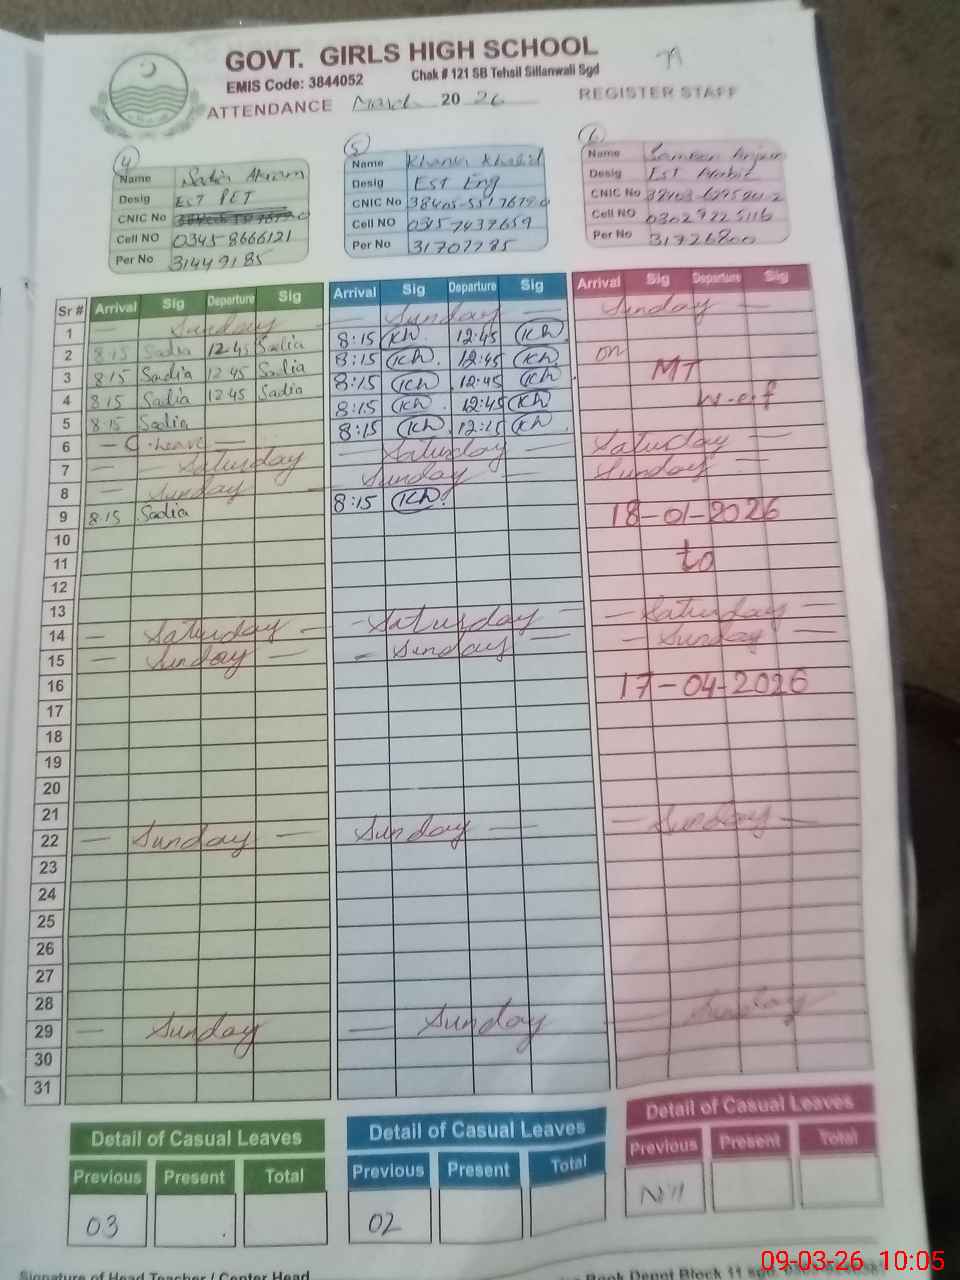 GOVT. GIRLS HIGH SCHOOL
EMIS Code: 3844052 Chak # 121 SB Tehsil Sillanwali Sgd
ATTENDANCE March 20 26 REGISTER STAFF
4
Name Sadia Akram
Desig EST PET
CNIC No
Cell NO 0345 8666121
Per No 31449185
5
Name Khansa Khalid
Desig EST Eng
CNIC No
Cell NO 0315 7437659
Per No 31707285
6
Name Anjum
Desig EST Arabic
CNIC No
Cell NO 0302 7225116
Per No 31726800
Sr # Arrival Sig Departure Sig Arrival Sig Departure Sig Arrival Sig Departure Sig
1 — Sunday — Sunday — Sunday —
2 8:15 Sadia 12:45 Sadia 8:15 Kh 12:45 Kh on
3 8:15 Sadia 12 45 Sadia 8:15 Kh 12:45 Kh MT
4 8:15 Sadia 12 45 Sadia 8:15 Kh 12:45 Kh w.e.f
5 8:15 Sadia 8:15 Kh 12:45 Kh
6 — C. Leave — 8:15 Kh 12:15 Kh
7 — Saturday — Saturday — Saturday —
8 — Sunday — Sunday — Sunday —
9 8:15 Sadia 8:15 Kh 18-01-2026
10
11 to
12
13
14 — Saturday — Saturday — Saturday —
15 — Sunday — Sunday — Sunday —
16
17 17-04-2026
18
19
20
21
22 — Sunday — Sunday — Sunday —
23
24
25
26
27
28
29 — Sunday — Sunday — Sunday
30
31
Detail of Casual Leaves Detail of Casual Leaves Detail of Casual Leaves
Previous Present Total Previous Present Total Previous Present Total
03 02 Nill
Signature of Head Teacher / Center Head
Book Depot Block 11
09-03-26 10:05